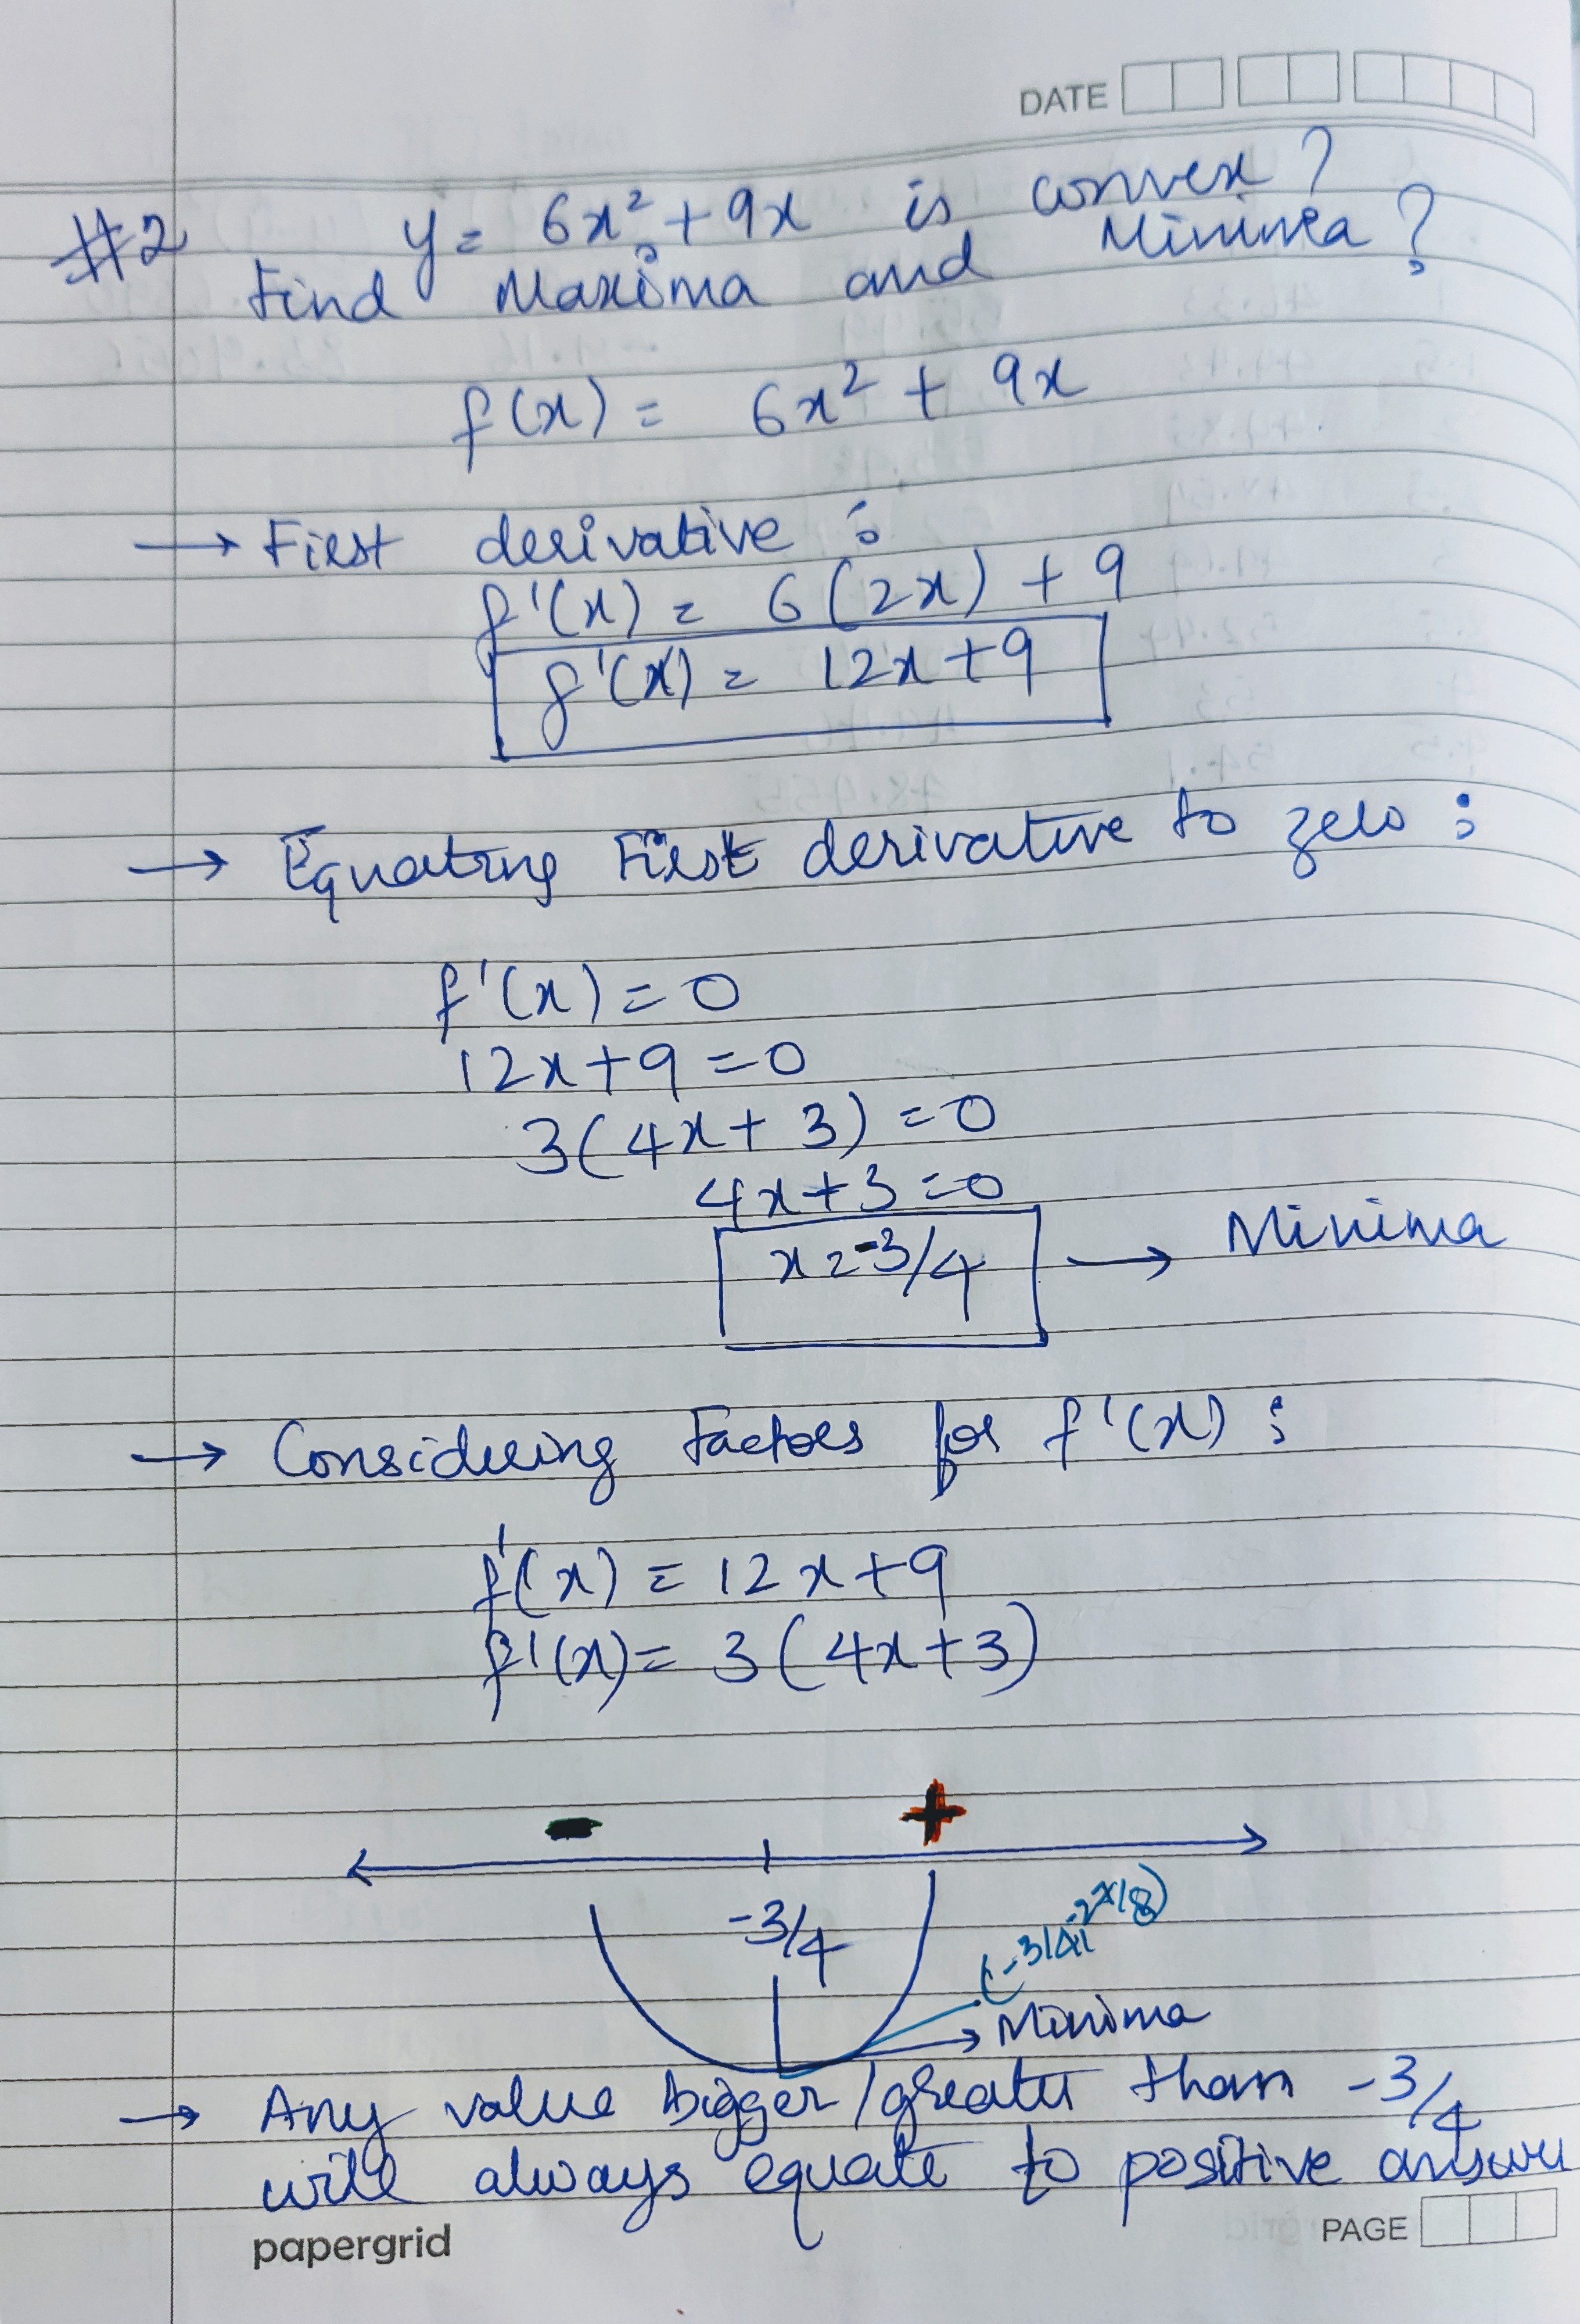 DATE
#2 y = 6x² + 9x is convex?
Find Maxima and Minima?
f(x) = 6x² + 9x
→ First derivative :
f'(x) = 6(2x) + 9
f'(x) = 12x+9
→ Equating First derivative to zero :
f'(x) = 0
12x+9 = 0
3(4x+3) = 0
4x+3 = 0
x = -3/4 → Minima
→ Considering Factors for f'(x) :
f'(x) = 12x+9
f'(x) = 3(4x+3)
- +
-3/4
(-3/4, -27/8)
Minima
→ Any value bigger/greater than -3/4
will always equate to positive answer
papergrid
PAGE